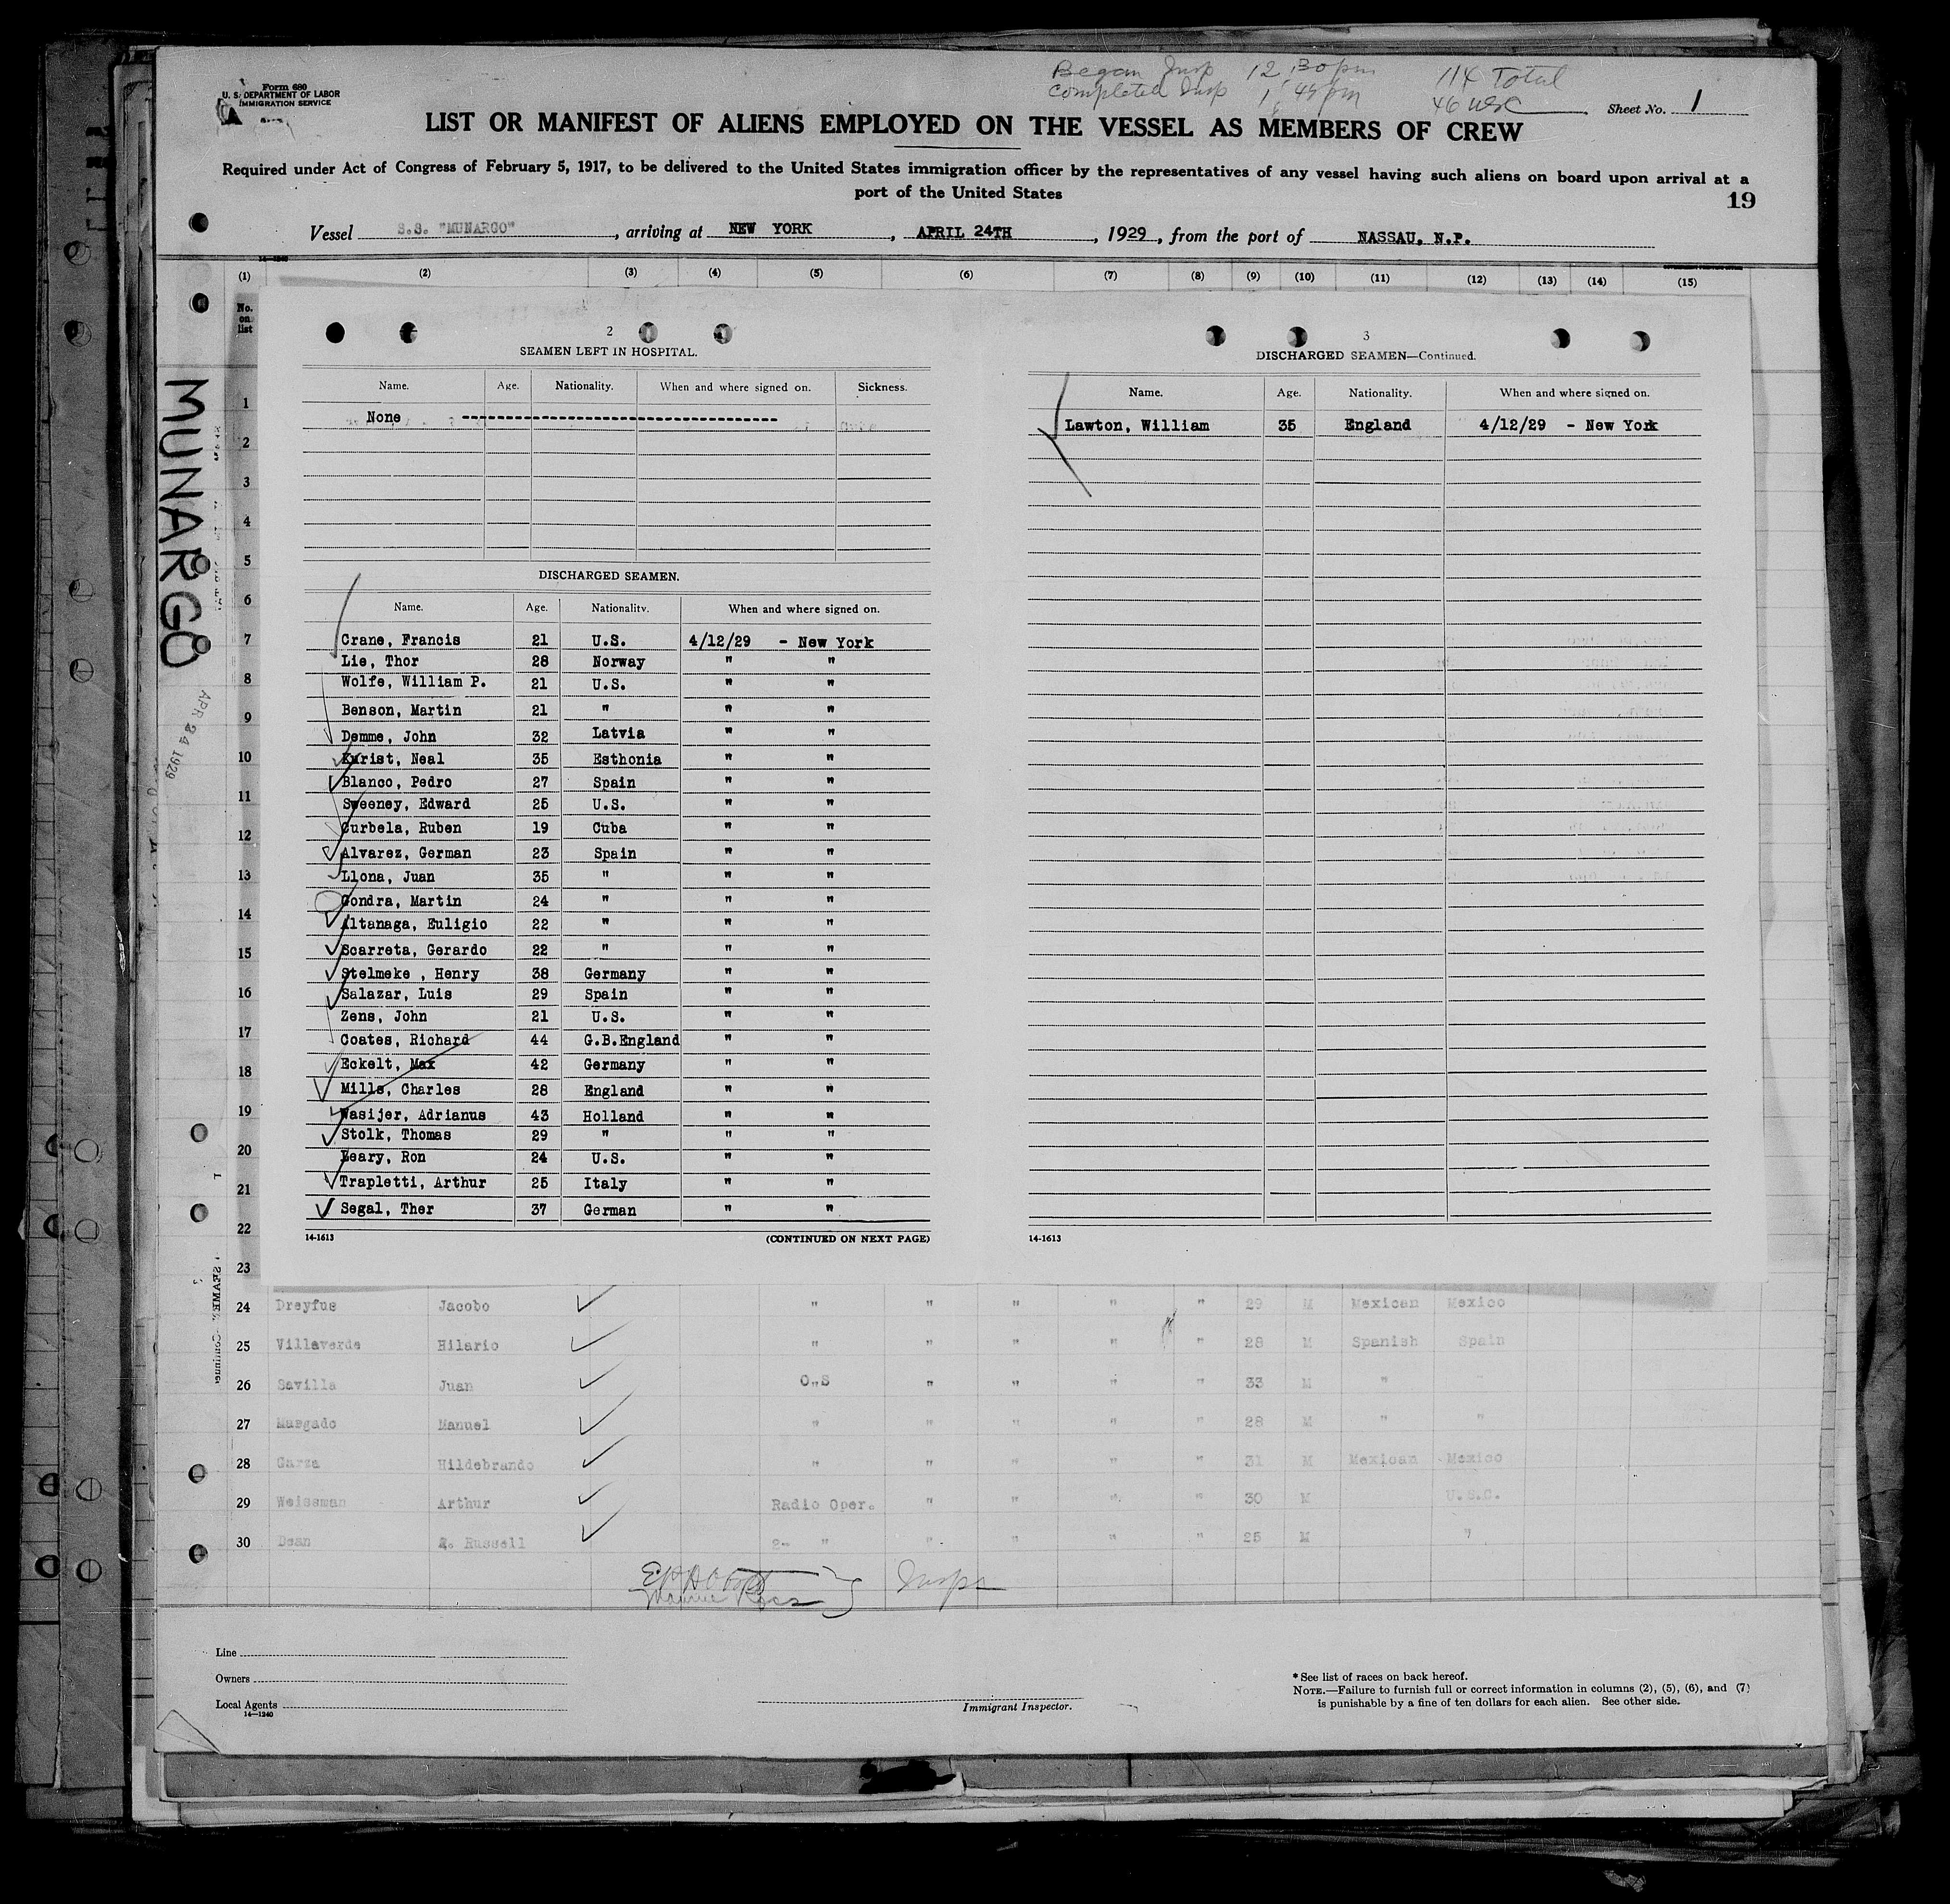 Form 680
U. S. DEPARTMENT OF LABOR
IMMIGRATION SERVICE
Began Insp 12:30 pm 114 Total
Completed Insp 1:45 pm 46 USC
Sheet No. 1
LIST OR MANIFEST OF ALIENS EMPLOYED ON THE VESSEL AS MEMBERS OF CREW
Required under Act of Congress of February 5, 1917, to be delivered to the United States immigration officer by the representatives of any vessel having such aliens on board upon arrival at a
port of the United States
19
Vessel S.S. "MUNARGO", arriving at NEW YORK, APRIL 24TH, 1929, from the port of NASSAU, N.P.
(1) (2) (3) (4) (5) (6) (7) (8) (9) (10) (11) (12) (13) (14) (15)
No. on list
MUNARGO
APR 24 1929
2
SEAMEN LEFT IN HOSPITAL.
Name. Age. Nationality. When and where signed on. Sickness.
None
DISCHARGED SEAMEN.
Name. Age. Nationality. When and where signed on.
Crane, Francis 21 U.S. 4/12/29 - New York
Lie, Thor 28 Norway " "
Wolfe, William P. 21 U.S. " "
Benson, Martin 21 " " "
Demme, John 32 Latvia " "
Kurist, Neal 35 Esthonia " "
Blanco, Pedro 27 Spain " "
Sweeney, Edward 25 U.S. " "
Curbela, Ruben 19 Cuba " "
Alvarez, German 23 Spain " "
Llona, Juan 35 " " "
Gondra, Martin 24 " " "
Altanaga, Euligio 22 " " "
Scarreta, Gerardo 22 " " "
Stelmeke , Henry 38 Germany " "
Salazar, Luis 29 Spain " "
Zens, John 21 U.S. " "
Coates, Richard 44 G.B.England " "
Eckelt, Max 42 Germany " "
Mills, Charles 28 England " "
Wasijer, Adrianus 43 Holland " "
Stolk, Thomas 29 " " "
Leary, Ron 24 U.S. " "
Trapletti, Arthur 25 Italy " "
Segal, Ther 37 German " "
14-1613 (CONTINUED ON NEXT PAGE)
3
DISCHARGED SEAMEN—Continued.
Name. Age. Nationality. When and where signed on.
Lawton, William 35 England 4/12/29 - New York
14-1613
1
2
3
4
5
6
7
8
9
10
11
12
13
14
15
16
17
18
19
20
21
22
23
24 Dreyfus Jacobo " " " " " 29 M Mexican Mexico
25 Villaverde Hilario " " " " " 28 M Spanish Spain
26 Savilla Juan O.S " " " " 33 M "
27 Margado Manuel " " " " " 28 M " "
28 Garza Hildebrando " " " " " 31 M Mexican Mexico
29 Weissman Arthur Radio Oper. " " " " 30 M U.S.C.
30 Dean R. Russell 2- " " " " " 25 M "
Insps
Line
Owners
Local Agents
14—1240
Immigrant Inspector.
* See list of races on back hereof.
NOTE.—Failure to furnish full or correct information in columns (2), (5), (6), and (7)
is punishable by a fine of ten dollars for each alien. See other side.